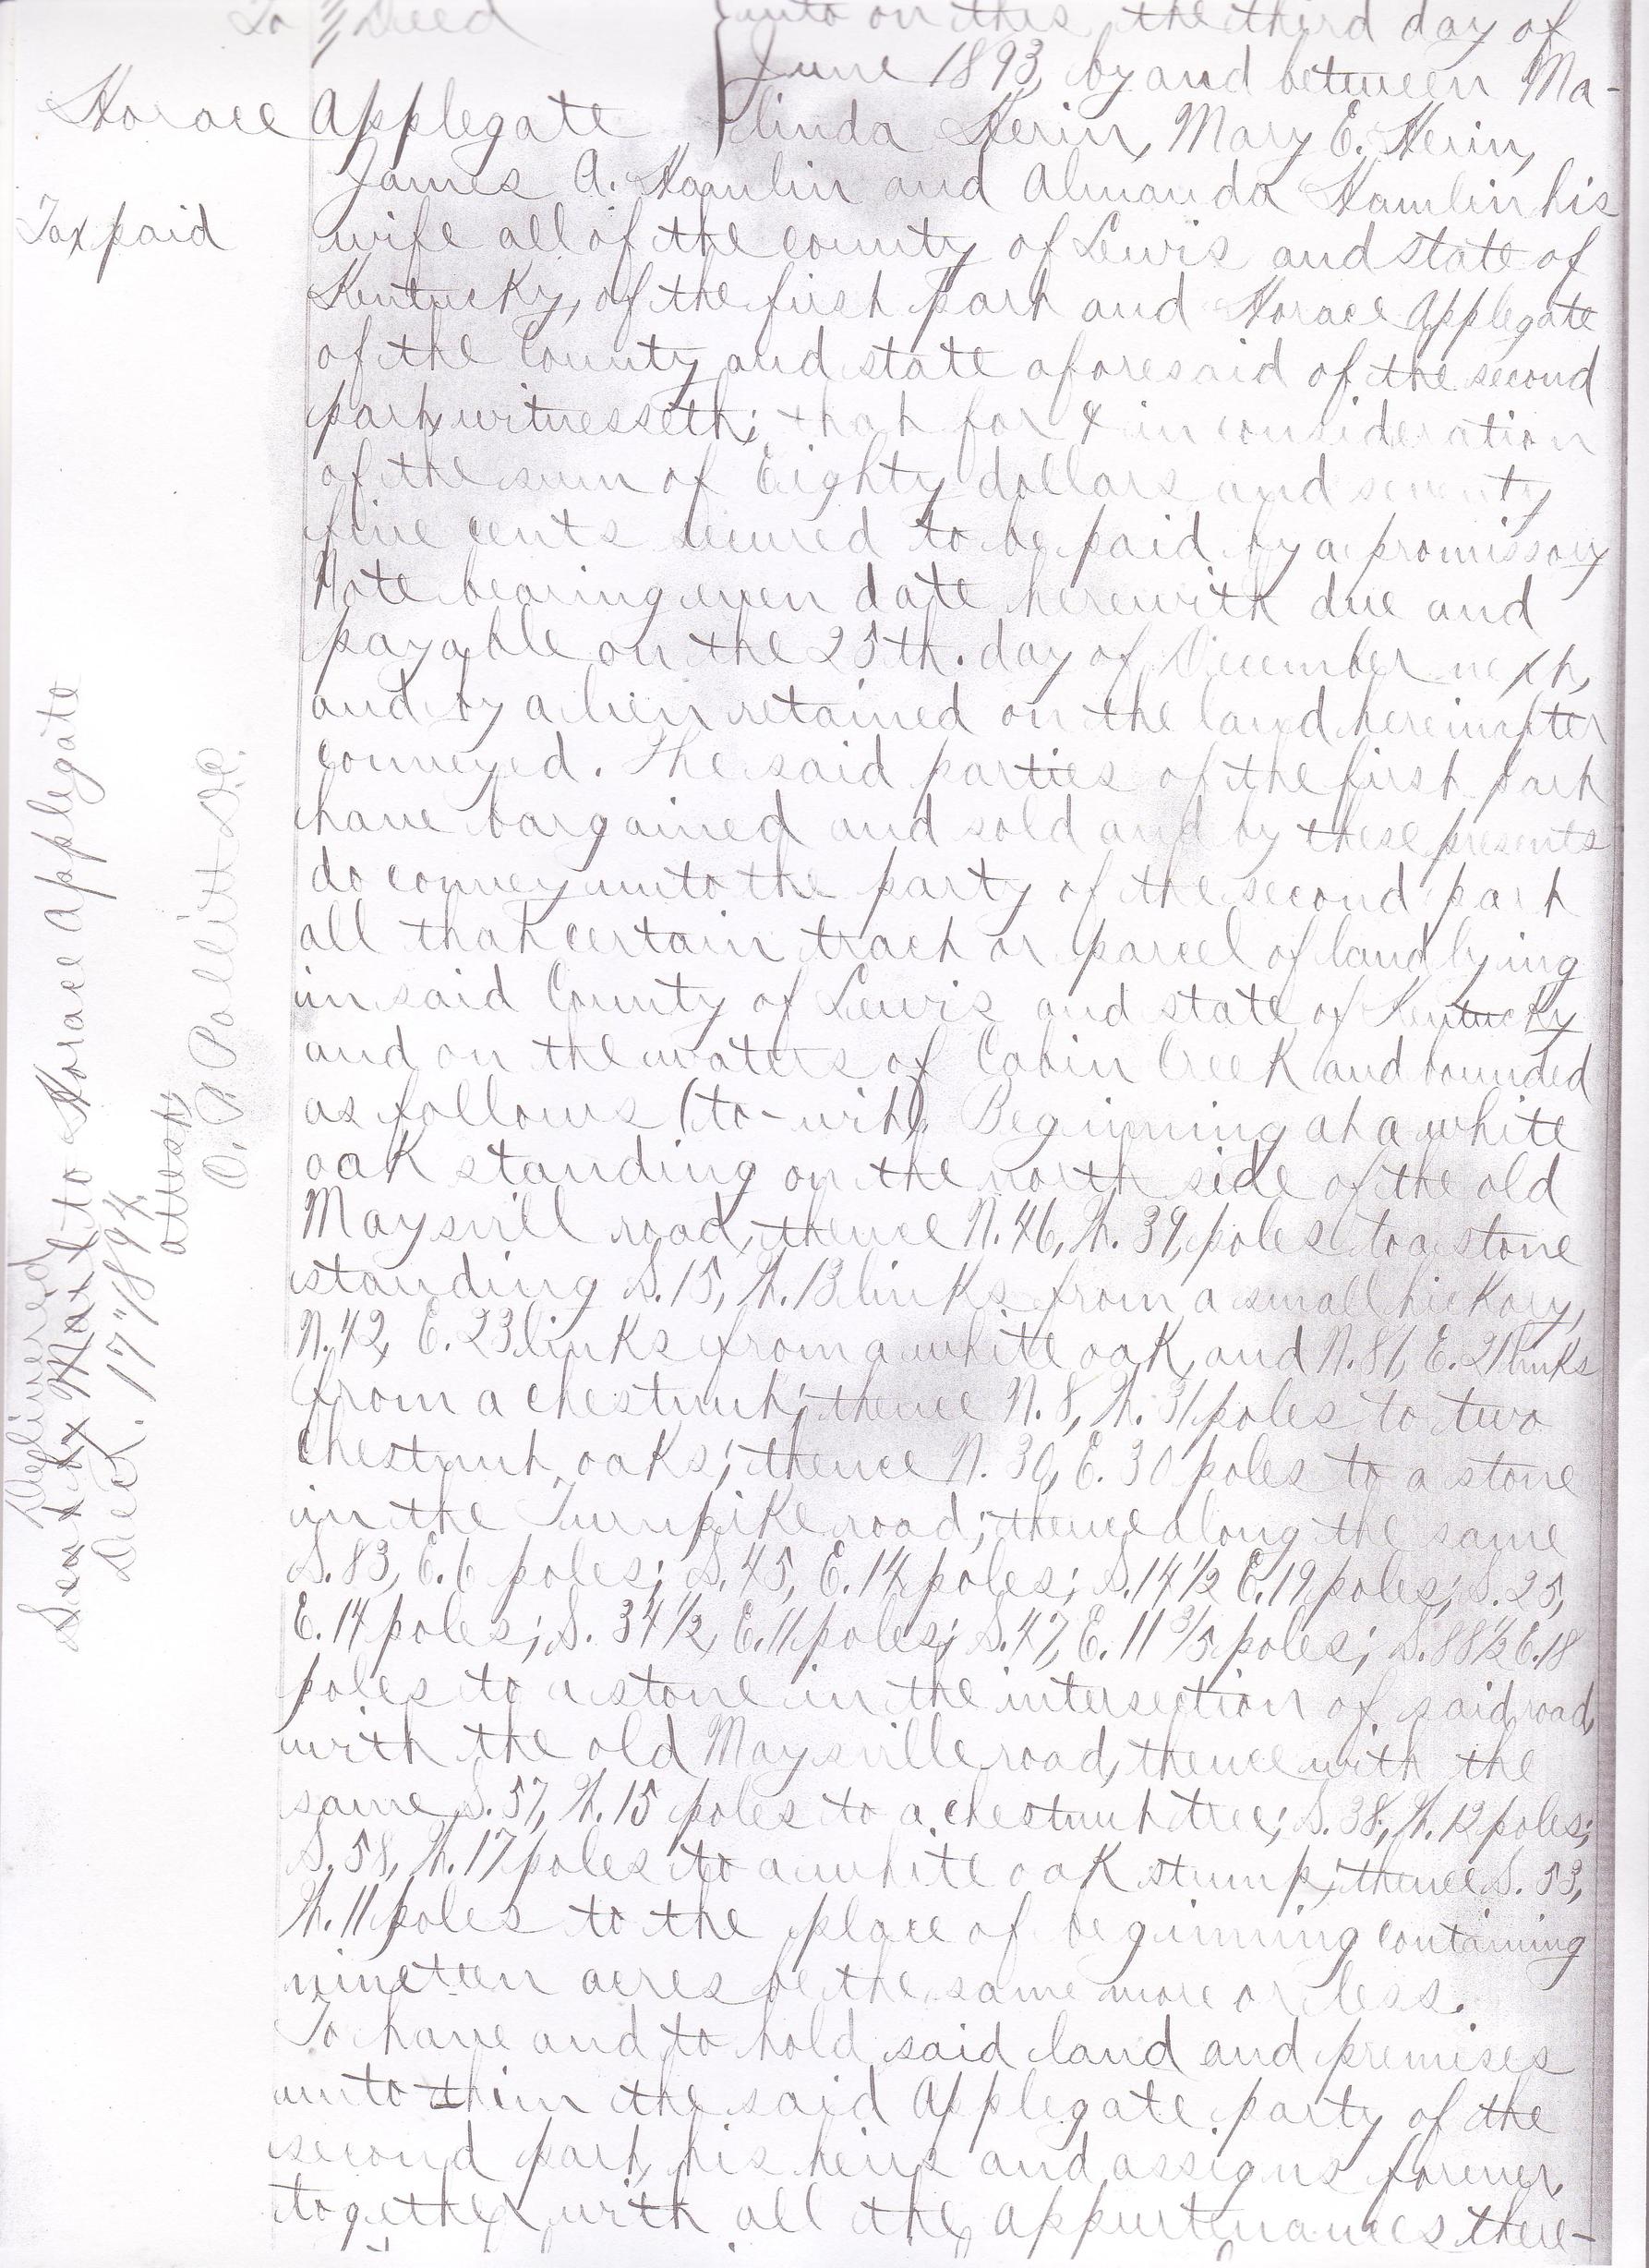 To } Deed
unto on this the third day of
June 1893, by and between Ma-
Horace Applegate
linda Herin, Mary E. Herin,
James A. Hamlin and Almanda Hamlin his
Tax paid
wife all of the county of Lewis and state of
Kentucky, of the first part and Horace Applegate
of the County and state aforesaid of the second
part, witnesseth; that for & in consideration
of the sum of Eighty dollars and seventy
five cents secured to be paid by a promissory
Note bearing even date herewith due and
payable on the 25th. day of December next,
and by a lien retained on the land hereinafter
conveyed. The said parties of the first part
have bargained and sold and by these presents
do convey unto the party of the second part
all that certain tract or parcel of land lying
in said County of Lewis and state of Kentucky
and on the waters of Cabin Creek and bounded
as follows (to-wit). Beginning at a white
oak standing on the north side of the old
Maysvill road, thence N. 46, W. 39, poles to a stone
standing S. 15, W. 13 links from a small hickory,
N. 42, E. 23 links from a white oak, and N. 81, E. 21 links
from a chestnut; thence N. 8, W. 31 poles to two
chestnut oaks; thence N. 30, E. 30 poles to a stone
in the Turnpike road; thence along the same
S. 83, E. 6 poles; S. 45, E. 14 poles; S. 14 1/2 E. 19 poles; S. 25,
E. 14 poles; S. 34 1/2, E. 11 poles; S. 47, E. 11 3/5 poles; S. 88 1/2 E. 18
poles to a stone in the intersection of said road,
with the old Maysville road, thence with the
same S. 57, W. 15 poles to a chestnut tree; S. 38, W. 12 poles;
S. 58, W. 17 poles to a white oak stump; thence S. 53,
W. 11 poles to the place of beginning containing
nineteen acres be the same more or less.
To have and to hold said land and premises
unto him the said Applegate party of the
second part, his heirs and assigns forever,
together with all the appurtenances there-
Delivered
Sent by Mail to Horace Applegate
Dec. 17" 1894.
attest
O. P. Pollitt D.C.